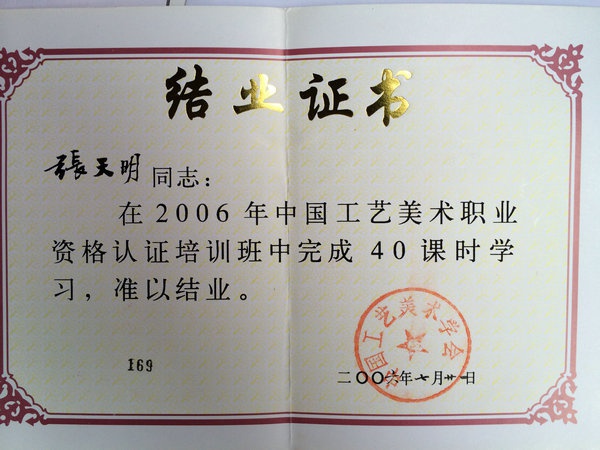 结业证书
張天明同志：
在2006年中国工艺美术职业
资格认证培训班中完成40课时学
习，准以结业。
中国工艺美术学会
169
二〇〇六年七月廿一日